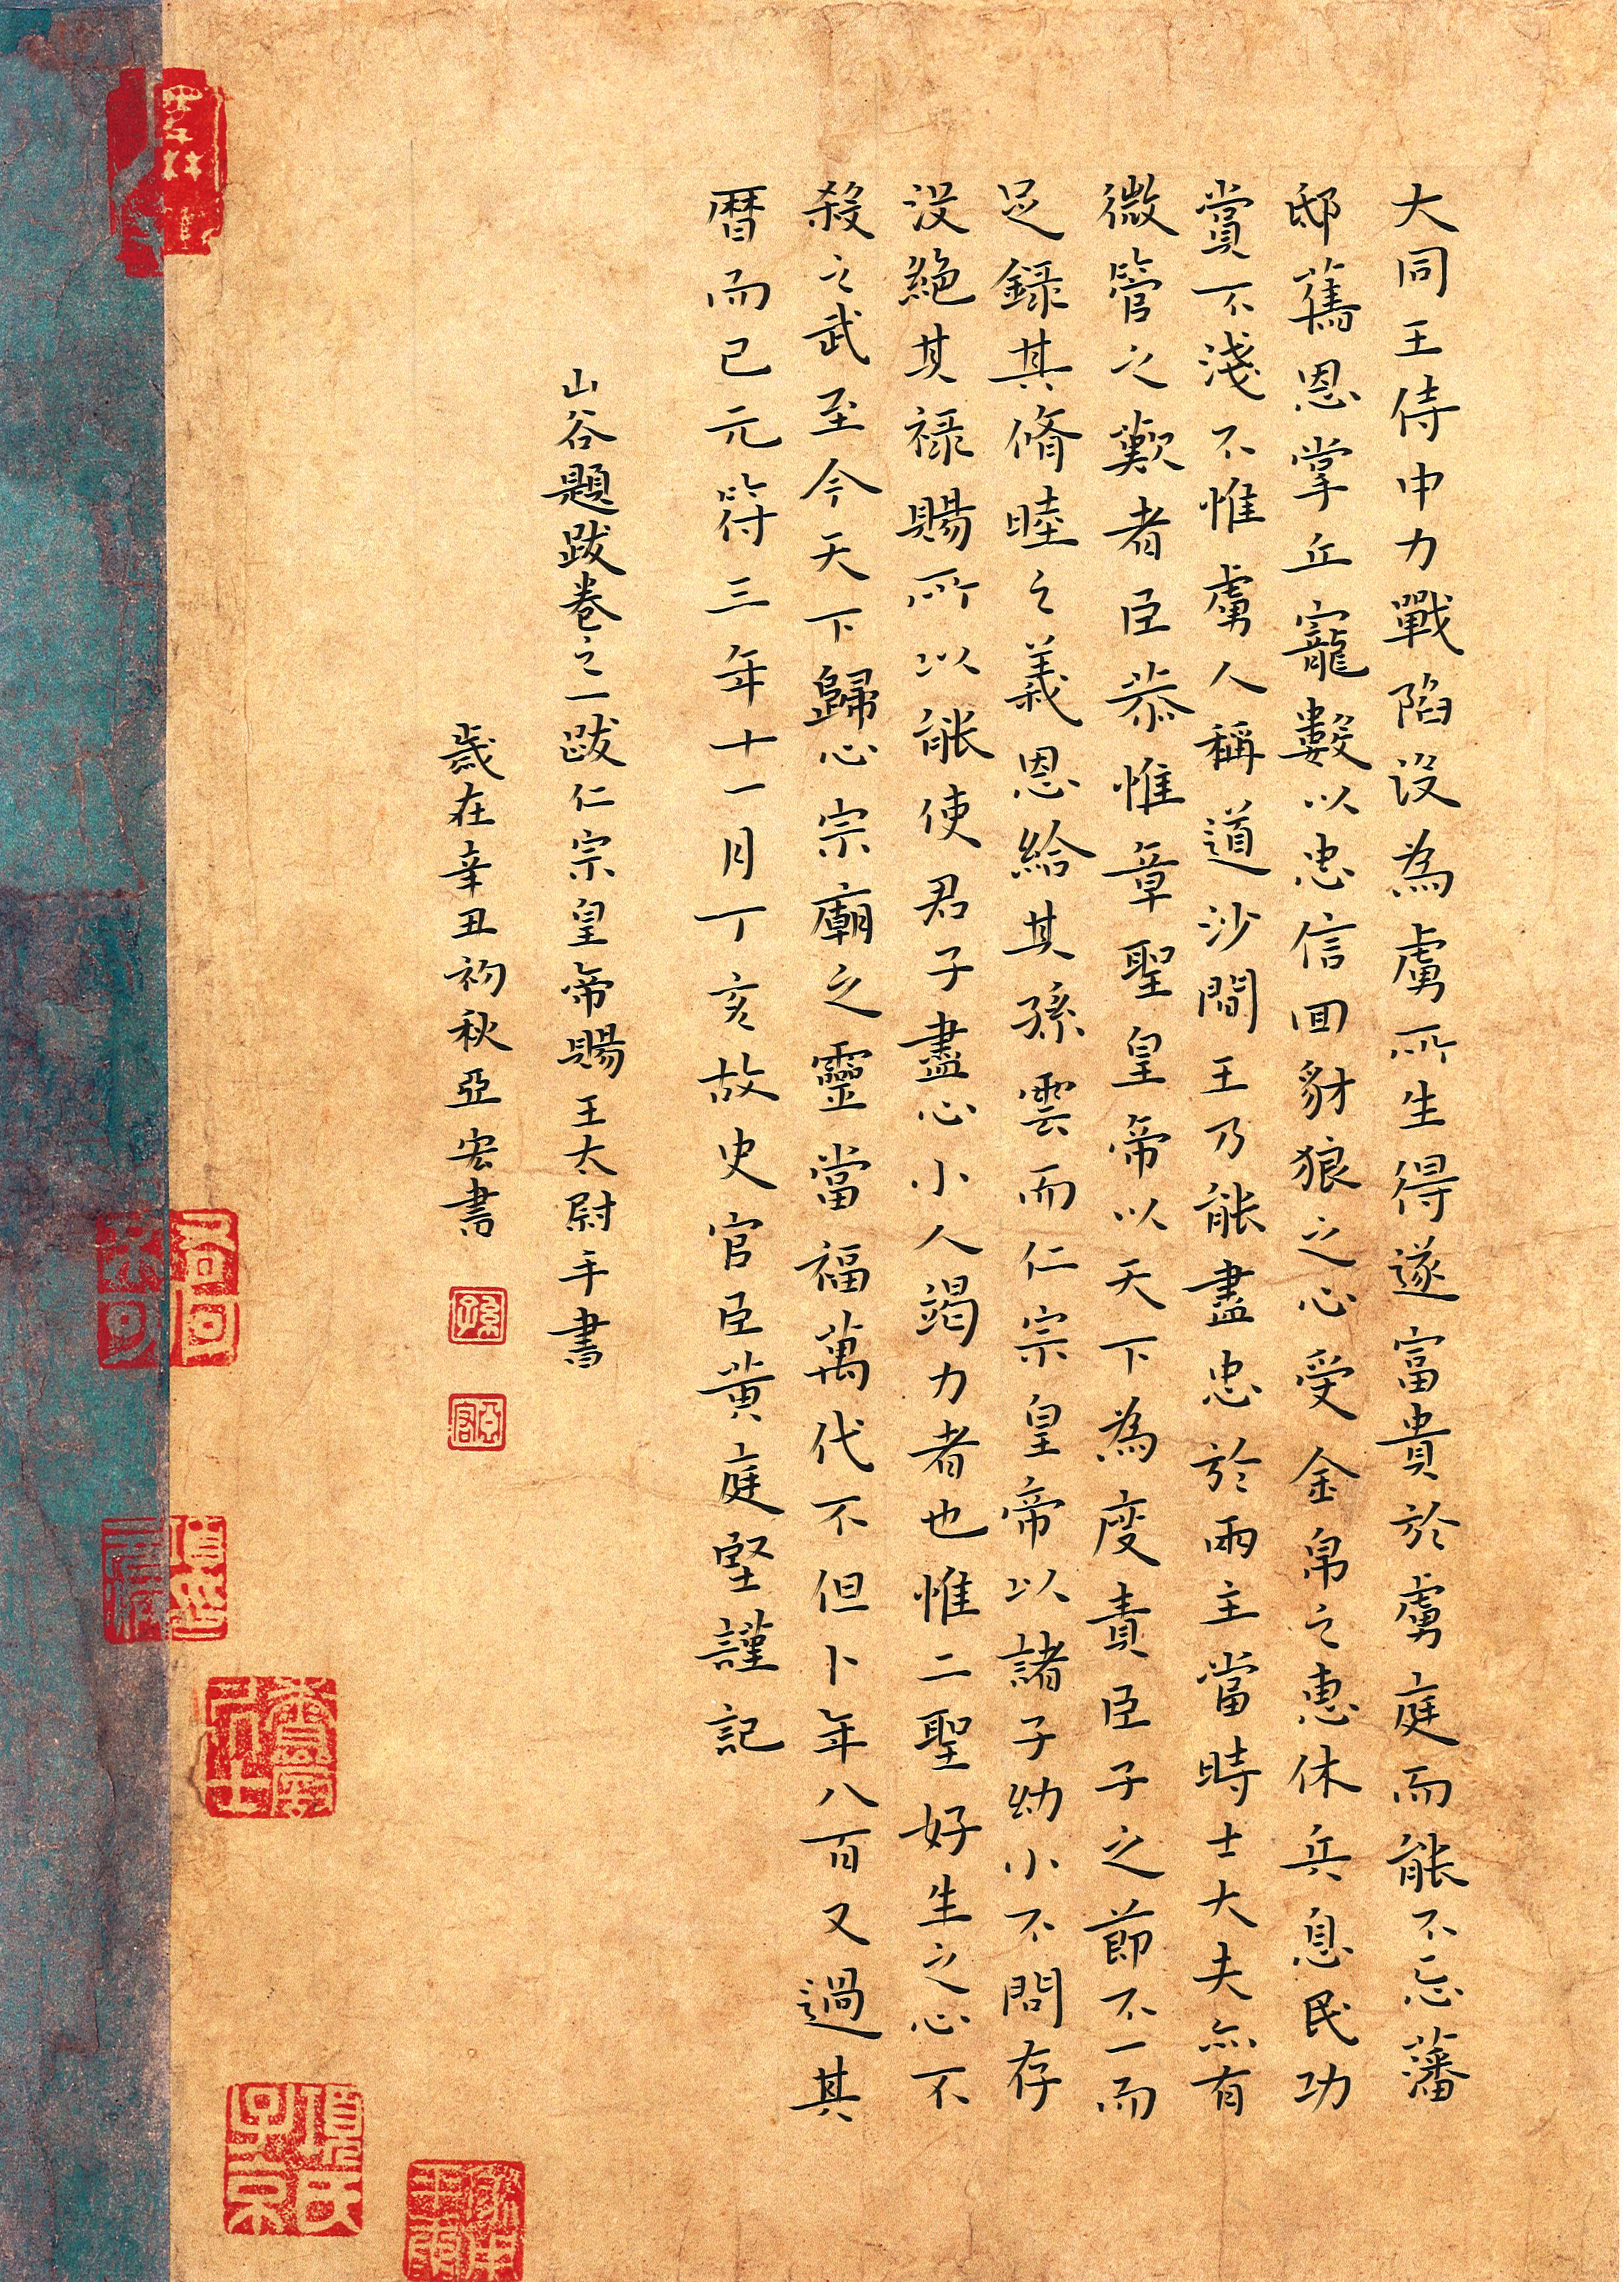 大同王侍中力戰陷沒為虜所生得遂富貴於虜庭而能不忘藩
邸舊恩掌丘寵數以忠信回豺狼之心受金帛之惠休兵息民功
賞不淺不惟虜人稱道沙間王乃能盡忠於兩主當時士大夫亦有
微管之歎者臣恭惟章聖皇帝以天下為度責臣子之節不一而
足錄其脩睦之義恩給其孫雲而仁宗皇帝以諸子幼小不問存
沒絕其祿賜所以能使君子盡心小人竭力者也惟二聖好生之心不
殺之武至今天下歸心宗廟之靈當福萬代不但卜年八百又過其
曆而已元符三年十一月丁亥故史官臣黃庭堅謹記
山谷題跋卷之一跋仁宗皇帝賜王太尉手書
歲在辛丑初秋亞宏書